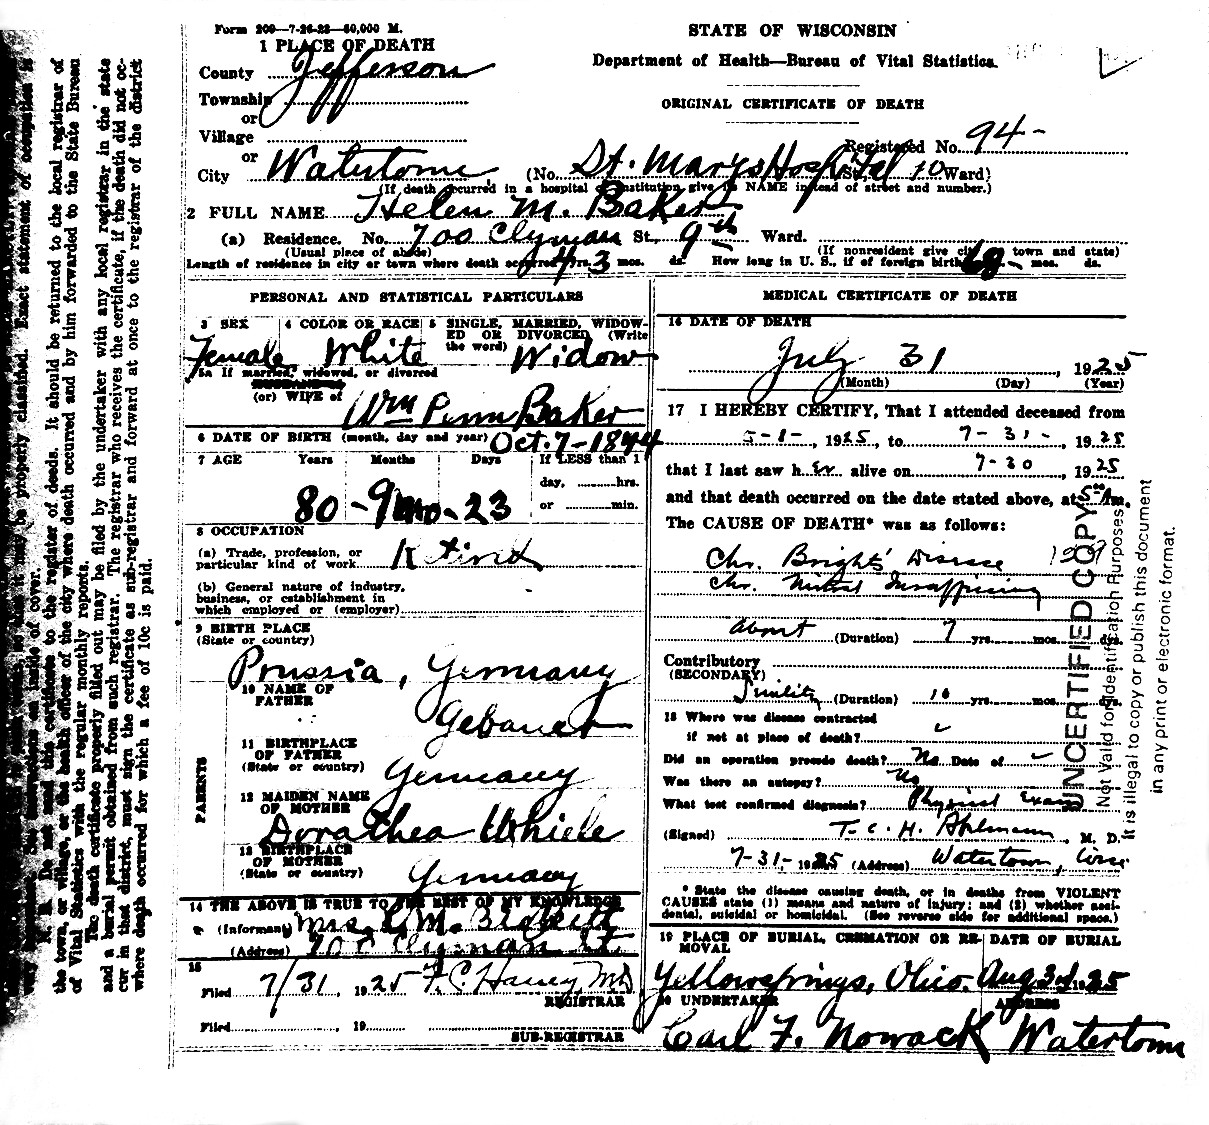 Form 209—7-26-22—60,000 M.
STATE OF WISCONSIN
Department of Health—Bureau of Vital Statistics.
ORIGINAL CERTIFICATE OF DEATH
1 PLACE OF DEATH
County Jefferson
Township
or
Village
or
City Watertown
Registered No. 94-
(No. St. Marys Hospital St. 10 Ward)
(If death occurred in a hospital or institution give its NAME instead of street and number.)
2 FULL NAME Helen M. Baker
(a) Residence. No. 700 Clyman St. 9th Ward.
(Usual place of abode)
(If nonresident give city town and state)
Length of residence in city or town where death occurred yrs. 3 mos. ds. How long in U. S., if of foreign birth 68 - mos. ds.
PERSONAL AND STATISTICAL PARTICULARS
3 SEX Female
4 COLOR OR RACE White
5 SINGLE, MARRIED, WIDOWED OR DIVORCED (Write the word) Widow
5a If married, widowed, or divorced
(or) WIFE of Wm Penn Baker
6 DATE OF BIRTH (month, day and year) Oct. 7-1844
7 AGE Years Months Days If LESS than 1
day, hrs.
or min.
80 - 9 mo - 23
8 OCCUPATION
(a) Trade, profession, or
particular kind of work Retired
(b) General nature of industry,
business, or establishment in
which employed or (employer)
9 BIRTH PLACE
(State or country)
Prussia, Germany
PARENTS
10 NAME OF
FATHER
Gebauer
11 BIRTHPLACE
OF FATHER
(State or country) Germany
12 MAIDEN NAME
OF MOTHER
Dorathea Uhiele
13 BIRTHPLACE
OF MOTHER
(State or country) Germany
14 THE ABOVE IS TRUE TO THE BEST OF MY KNOWLEDGE
(Informant) Mrs. M.
(Address) 700 Clyman St.
15
Filed 7/31, 1925 F. C. Haney, MD
REGISTRAR
Filed , 19
SUB-REGISTRAR
MEDICAL CERTIFICATE OF DEATH
16 DATE OF DEATH
July 31, 1925
(Month) (Day) (Year)
17 I HEREBY CERTIFY, That I attended deceased from
5-1-, 1925, to 7-31-, 1925
that I last saw her alive on 7-30 1925
and that death occurred on the date stated above, at 5:00 A m.
The CAUSE OF DEATH* was as follows:
Chr. Brights' Disease
Chr. Mitral Insufficiency
about (Duration) 7 yrs. mos. dys.
Contributory
(SECONDARY)
Senility (Duration) 10 yrs. mos. dys.
18 Where was disease contracted
if not at place of death?
Did an operation precede death? No Date of
Was there an autopsy? No
What test confirmed diagnosis? Physical Exam
(Signed) T. C. H. Ahlmann, M. D.
7-31-1925 (Address) Watertown, Wisc
* State the disease causing death, or in deaths from VIOLENT
CAUSES state (1) means and nature of injury; and (2) whether acci-
dental, suicidal or homicidal. (See reverse side for additional space.)
19 PLACE OF BURIAL, CREMATION OR RE-
MOVAL
DATE OF BURIAL
Yellowsprings, Ohio. Aug 3rd 1925
20 UNDERTAKER
ADDRESS
Carl F. Nowack Watertown
UNCERTIFIED COPY
Not Valid for Identification Purposes
It is illegal to copy or publish this document
in any print or electronic format.
the town, or village, or the health officer of the city where death occurred and by him forwarded to the State Bureau
of Vital Statistics with the regular monthly reports.
The death certificate properly filled out may be filed by the undertaker with any local registrar in the state
and a burial permit obtained from such registrar. The registrar who receives the certificate, if the death did not oc-
cur in that district, must sign the certificate as sub-registrar and forward at once to the registrar of the district
where death occurred for which a fee of 10c is paid.